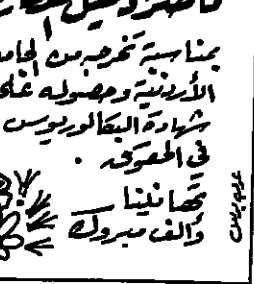 بمناسبة تخرجه من الجامعة
الأردنية وحصوله على
شهادة البكالوريوس
في الحقوق .
تهانينا
وألف مبروك